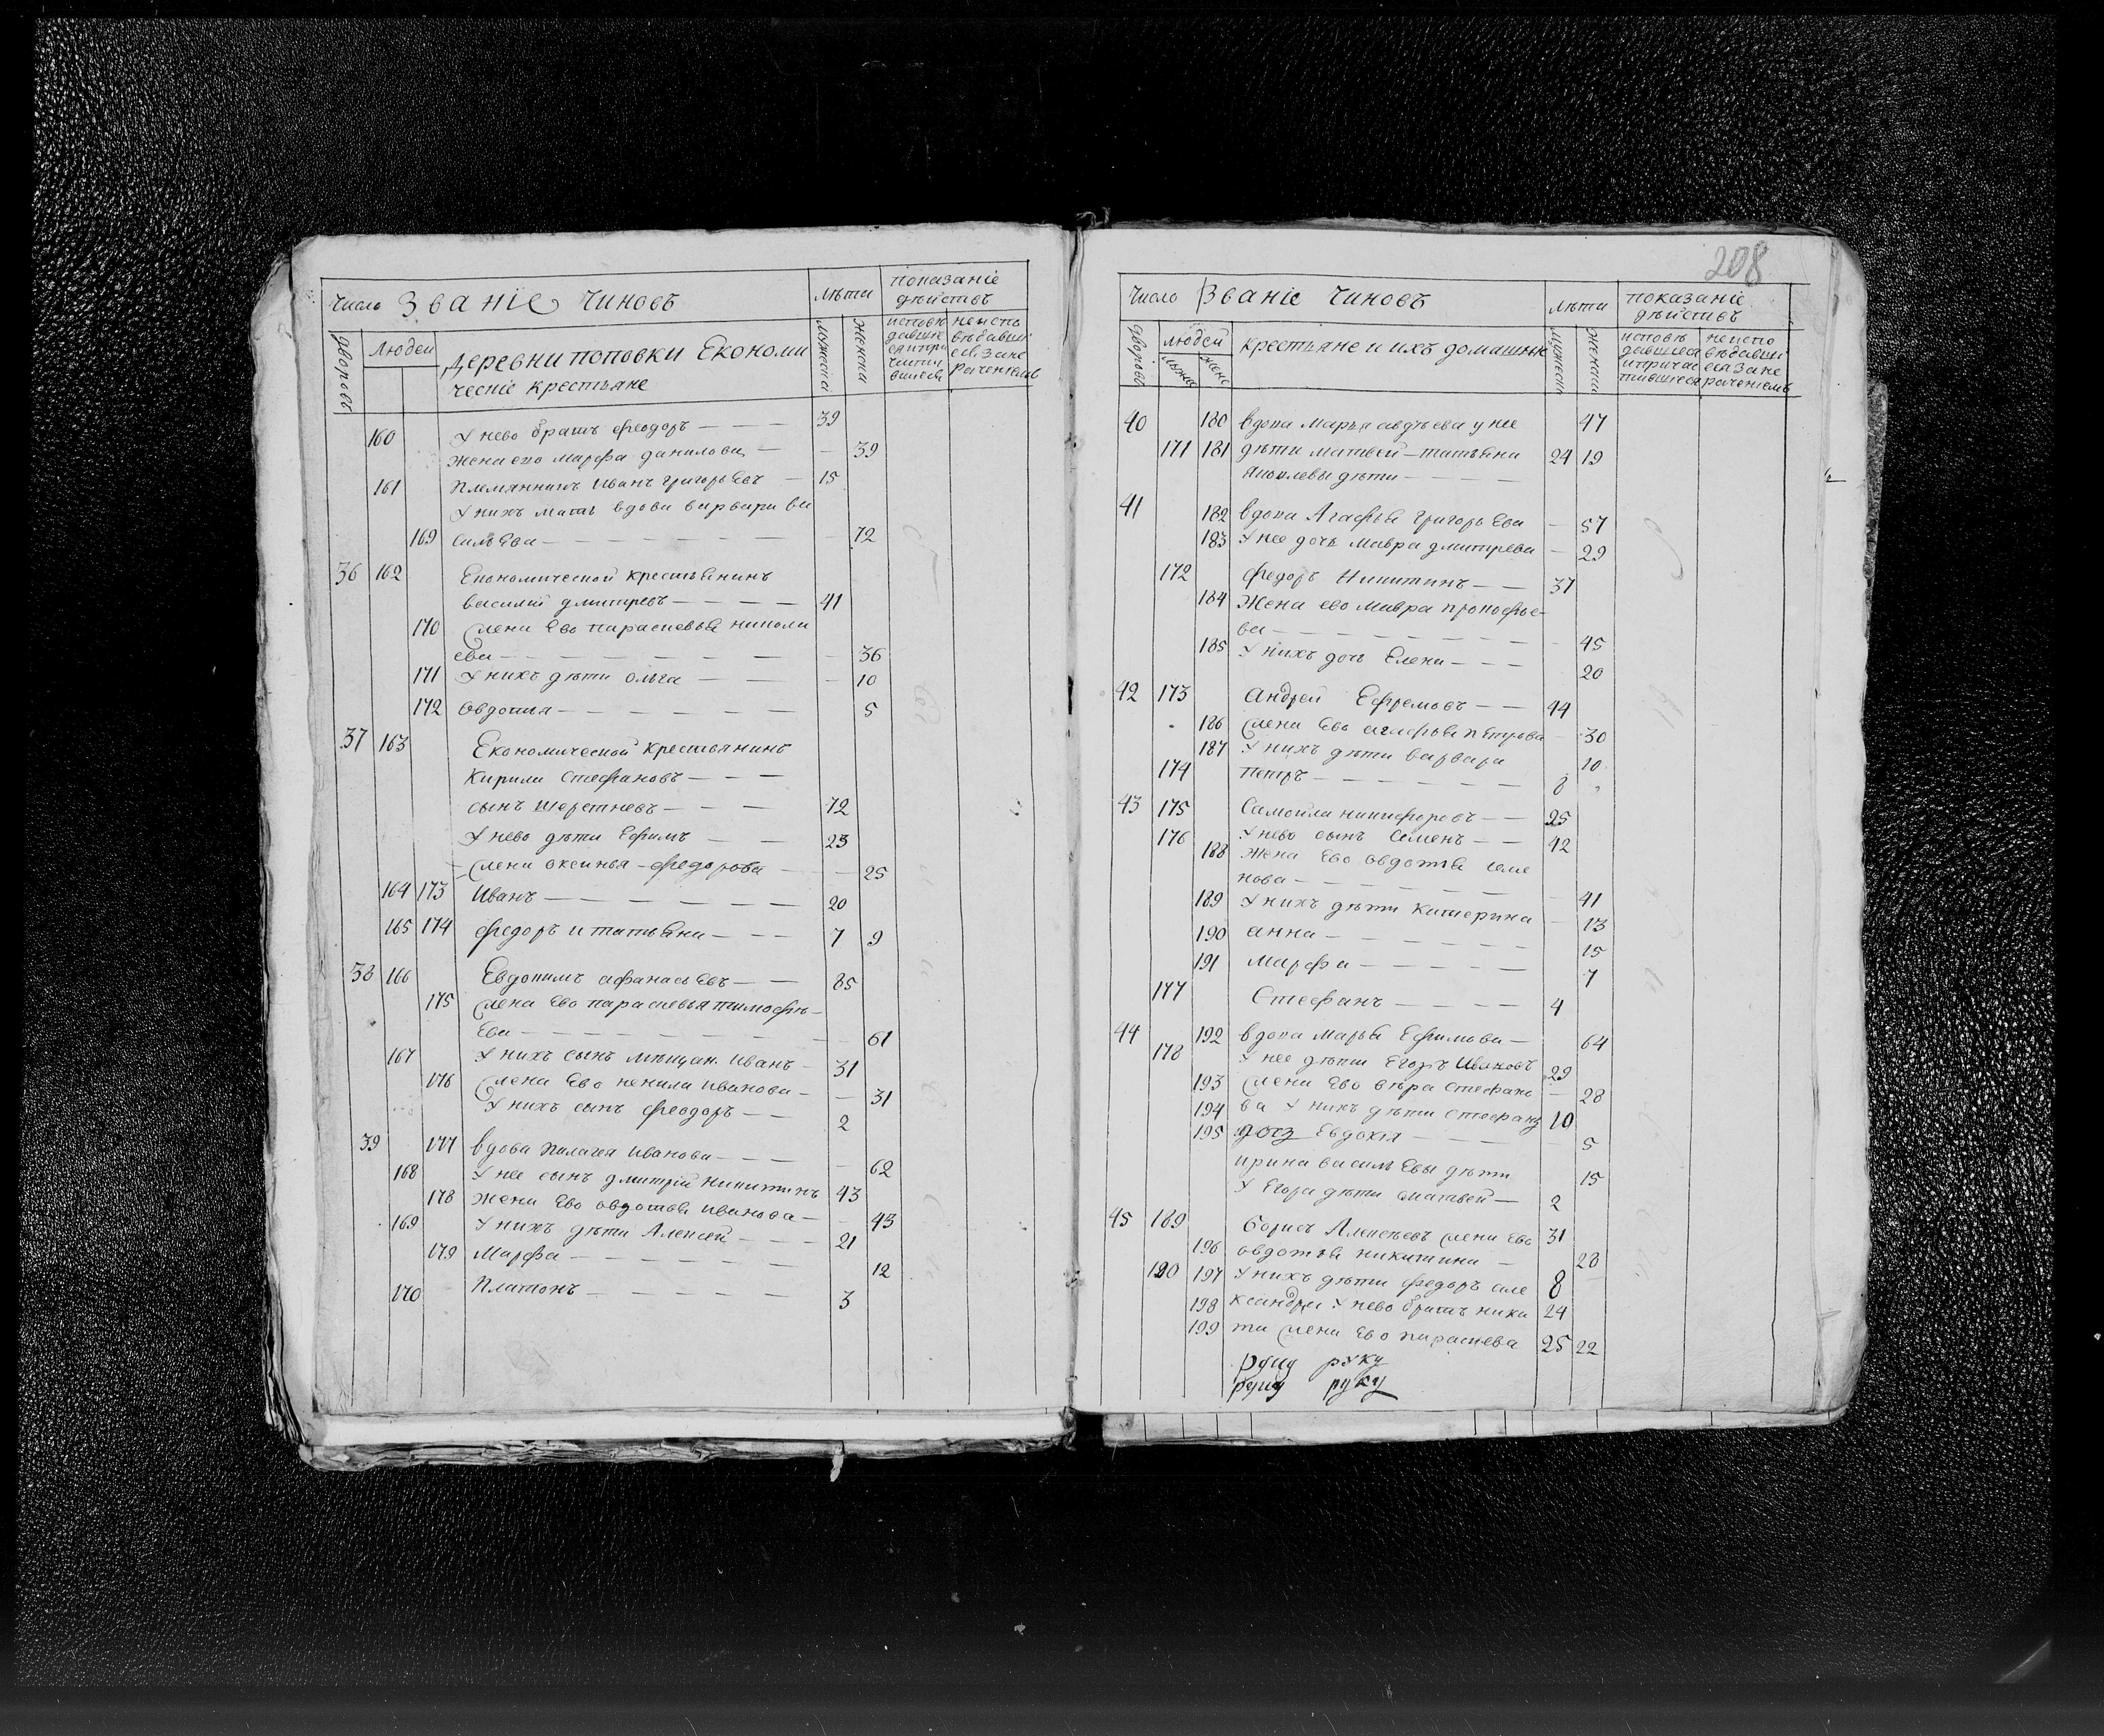 Число Званіе Чиновъ лѣта показаніе
дѣйствъ
дворовъ людей деревни поповки Економи мужска женска исповѣ неиспо
ческіе крестьяне давши вѣдавши
160 У нево братъ Феодоръ 39
жена ево Марфа данилова 39
161 Племянникъ Иванъ григорьевъ 15
У нихъ мать вдова варвара ва
169 сильева 72
36 162 Економической крестьянинъ
василий дмитревъ 41
170 жена Ево параскевья никола
ева 36
171 У нихъ дѣти ольга 10
172 Овдотья 5
37 163 Економической крестьянинъ
Кирила Стефановъ
сынъ шерстневъ 72
У нево дѣти Ефимъ 23
жена оксинья Федорова 25
164 173 Иванъ 20
165 174 Федоръ и татьяна 7 9
38 166 Евдокимъ афанасьевъ 85
175 жена Ево параскевья тимофѣ
Ева 61
167 У нихъ сынъ Иванъ 31
176 жена Ево ненила Иванова 31
У нихъ сынъ Феодоръ 2
39 177 вдова Пелагея Иванова 62
168 У нее сынъ дмитрій никитинъ 43
178 жена Ево овдотья Иванова 43
169 У нихъ дѣти Алексей 21
179 Марфа 12
170 Платонъ 3
208
Число Званіе Чиновъ лѣта показаніе
дѣйствъ
дворовъ людей крестьяне и ихъ домашніе мужска женска исповѣ неиспо
мужс женс давшися вѣдавши
и причас ся за не
тившися раченіемъ
40 180 вдова Марья авдѣева у нее 47
171 181 дѣти матвей татьяна 24 19
Яковлевы дѣти
41 182 вдова Агафья григорьева 57
183 У нее дочь Мавра дмитрева 29
172 Федоръ Никитинъ 37
184 Жена ево Мавра прокофье
ва 45
185 У нихъ дочь Елена 20
42 173 Андрей Ефремовъ 44
186 жена Ево агафья петрова 30
187 У нихъ дѣти варвара 10
174 петръ 8
43 175 Самойла никифоровъ 25
176 У нево сынъ Семенъ 42
188 Жена Ево овдотья семе
нова 41
189 У нихъ дѣти катерина 13
190 анна 15
191 Марфа 7
177 Стефанъ 4
44 192 вдова Марья Ефимова 64
178 У нее дѣти Егоръ Ивановъ 29
193 жена Ево вѣра Стефано 28
194 ва У нихъ дѣти Стефанъ 10
195 дочь Евдокія 5
ирина васильевы дѣти 15
У Егора дѣти матвей 2
45 189 Борисъ Алексѣевъ жена Ево 31
196 овдотья никитина 28
190 197 У нихъ дѣти Федоръ але 8
198 ксандра У нево братъ ники 24
199 та жена Ево параскева 25 22
руку
руку